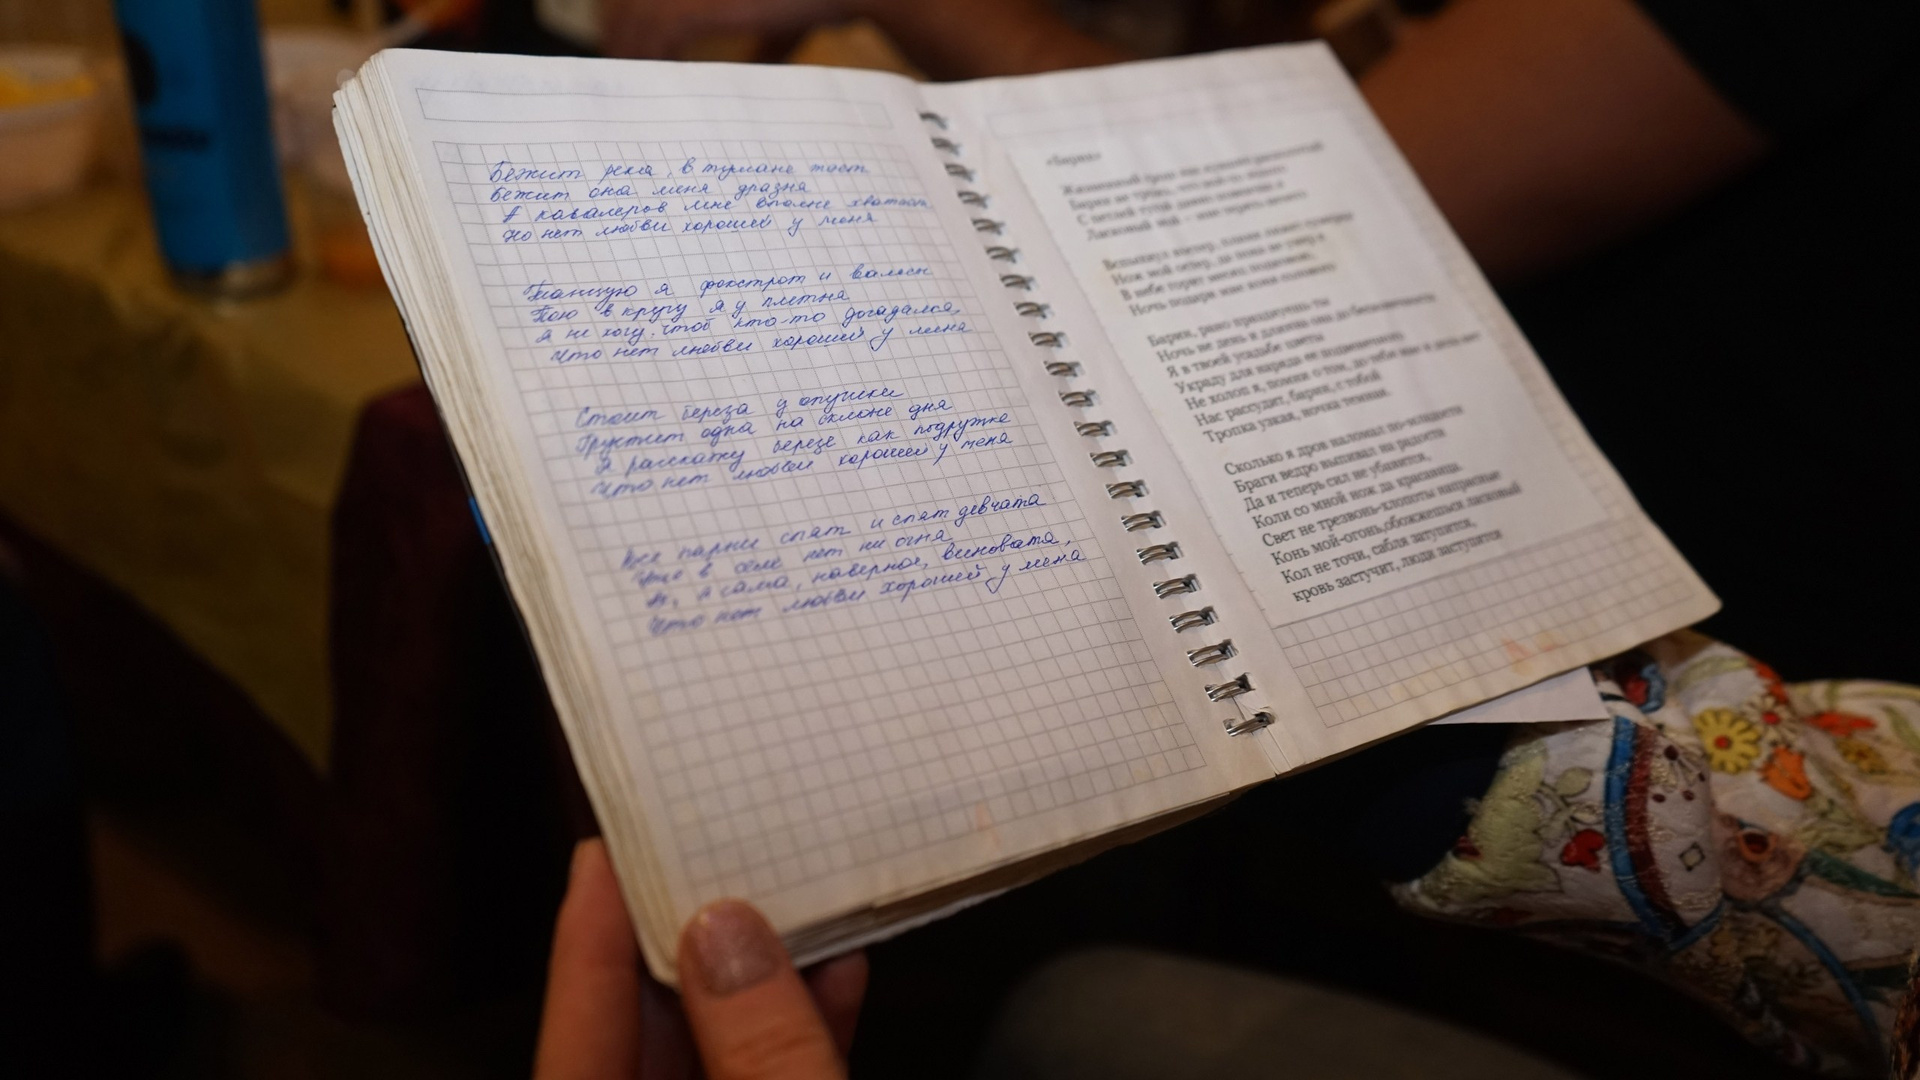 Бежит река, в тумане тает
Бежит она меня дразня
А кавалеров мне вполне хватает
Но нет любви хорошей у меня
Танцую я фокстрот и вальсы
Пою в кругу я у плетня
Я не хочу. чтоб кто-то догадался,
Что нет любви хорошей у меня
Стоит береза у опушки
Грустит одна на склоне дня
Я расскажу березе как подружке
Что нет любви хорошей у меня
Все парни спят и спят девчата
Уже в селе нет ни огня
Я, я сама, наверное, виновата,
Что нет любви хорошей у меня
«Барин»
Барин не трожь,
С петлей тугой давно
Ласковый мой –
Вспыхнул костер, пламя лижет
Нож мой остер, да пока не
В небе горит месяц подковою,
Ночь подари мне
Барин, рано празднуешь ты
Ночь не день и длинна она до бесконечности
Я в твоей усадьбе цветы
Украду для наряда ее подвенечного
Не холоп я, помни о том, до тебя мне и дела нет
Нас рассудит, барин, с тобой
Тропка узкая, ночка темная.
Сколько я дров наломал по-младости
Браги ведро выпивал на радости
Да и теперь сил не убавится,
Коли со мной нож да красавица.
Свет не трезвонь-хлопоты напрасные
Конь мой-огонь,обожжешься ласковый
Кол не точи, сабля затупится,
кровь застучит, люди заступятся